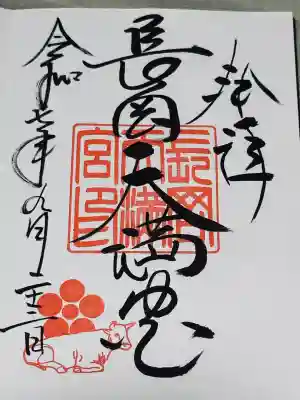 奉拝
長岡天満宮
長岡天満宮印
令和七年九月二十二日